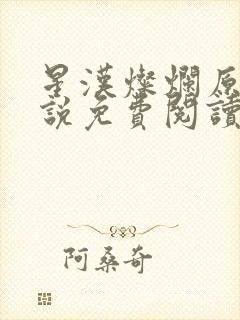 星漢燦爛原
說免費閱讀
阿桑奇